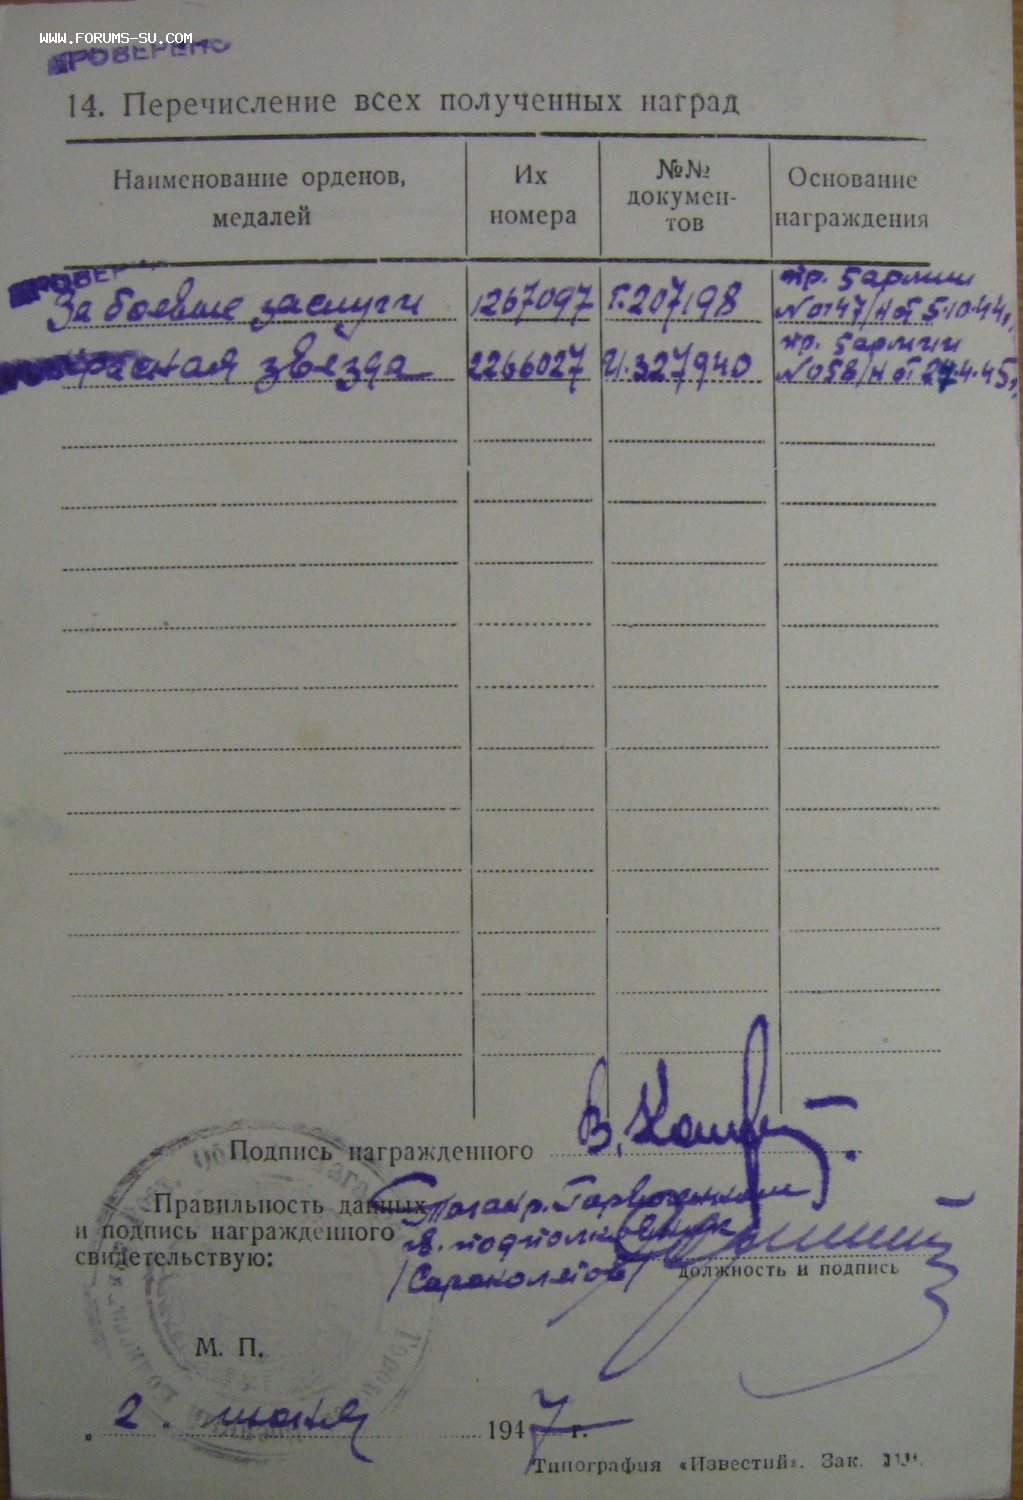 WWW.FORUMS-SU.COM
ПРОВЕРЕНО
14. Перечисление всех полученных наград
Наименование орденов, медалей
Их номера
№№ докумен-
тов
Основание награждения
ПРОВЕР
За боевые заслуги 1267097 Г.207198 пр. 5 армии №0147/н от 5.10.44г.
Красная звезда 2266027 И.327940 пр. 5 армии №058/н от 24.4.45г.
Подпись награжденного В.
Правильность данных
и подпись награжденного
свидетельствую:
Таганр. Горвоенком
подполковник
/Сараколетов/
должность и подпись
М. П.
„2“ июня 1947 г.
Типография «Известий». Зак.